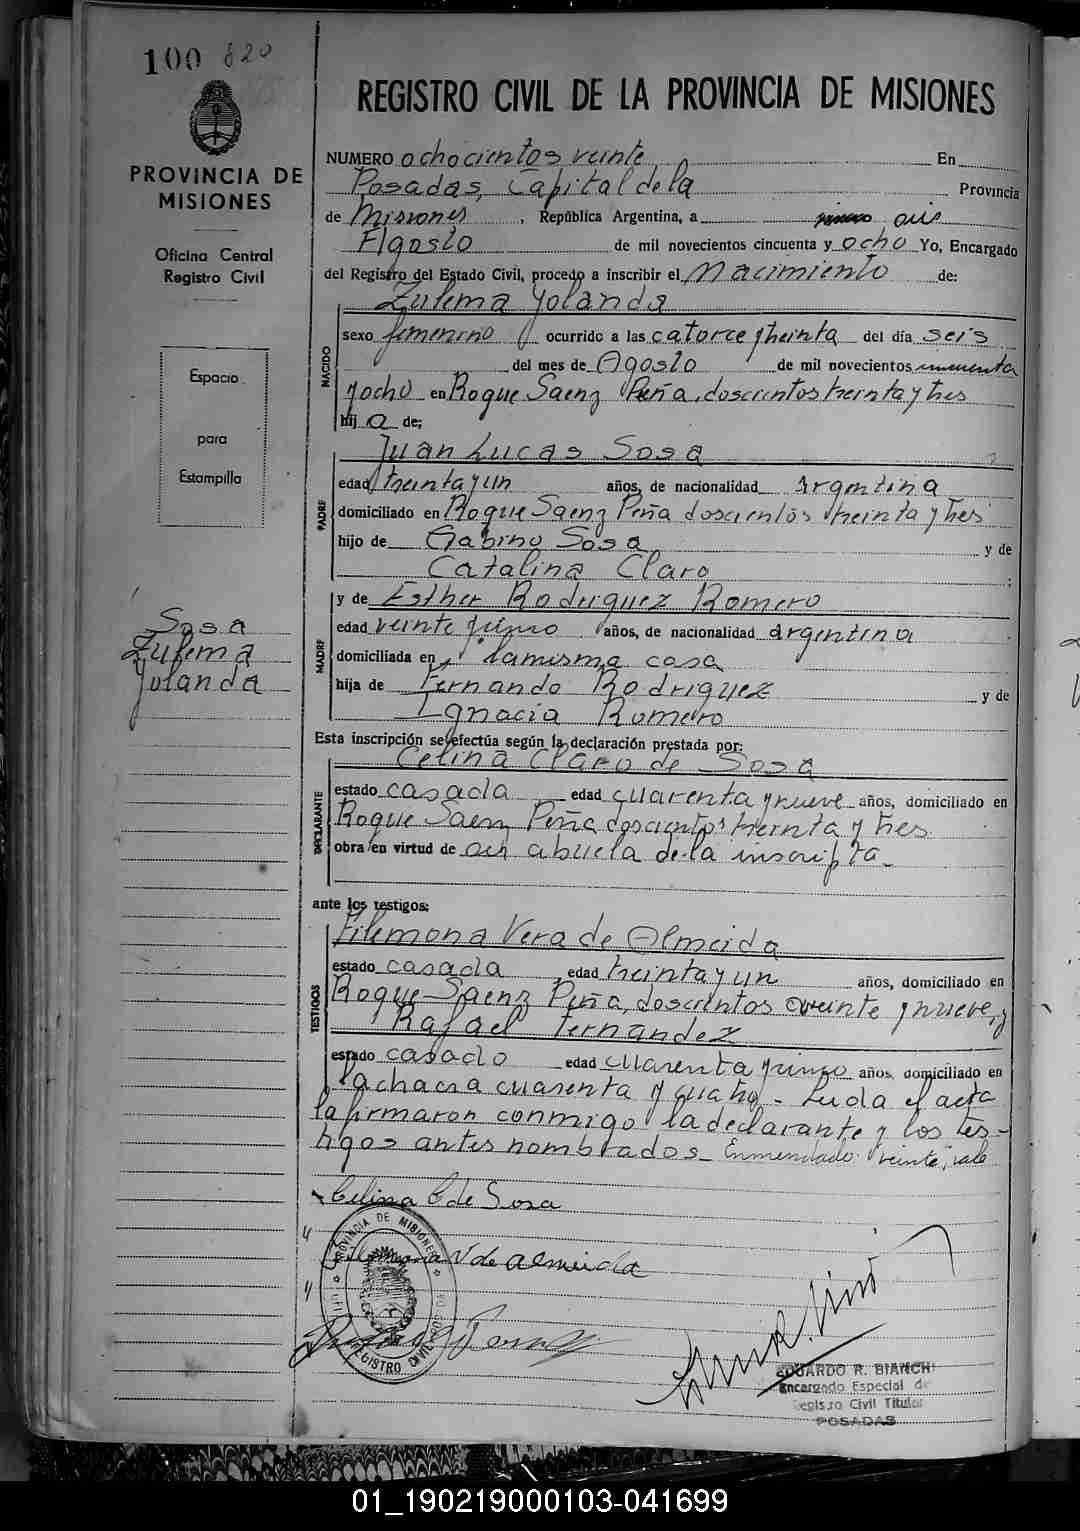 100 820
PROVINCIA DE
MISIONES
Oficina Central
Registro Civil
Espacio
para
Estampilla
Sosa
Zulema
Yolanda
REGISTRO CIVIL DE LA PROVINCIA DE MISIONES
NUMERO ochocientos veinte En
Posadas, Capital de la Provincia
de Misiones, República Argentina, a
Agosto de mil novecientos cincuenta y ocho Yo, Encargado
del Registro del Estado Civil, procedo a inscribir el Nacimiento de:
Zulema Yolanda
NACIDO
sexo femenino ocurrido a las catorce y treinta del día seis
del mes de Agosto de mil novecientos cincuenta
y ocho en Roque Saenz Peña, doscientos treinta y tres
hij a de:
Juan Lucas Sosa
PADRE
edad treinta y un años, de nacionalidad argentina
domiciliado en Roque Saenz Peña doscientos treinta y tres
hijo de Gabino Sosa y de
Catalina Claro ;
y de Esther Rodriguez Romero
MADRE
edad veinte y cinco años, de nacionalidad argentina
domiciliada en la misma casa
hija de Fernando Rodriguez y de
Ignacia Romero
Esta inscripción se efectúa según la declaración prestada por:
Celina Claro de Sosa
DECLARANTE
estado casada edad cuarenta y nueve años, domiciliado en
Roque Saenz Peña doscientos treinta y tres
obra en virtud de ser abuela de la inscripta
ante los testigos:
Filemona Vera de Almeida
TESTIGOS
estado casada edad treinta y un años, domiciliado en
Roque Saenz Peña, doscientos veinte y nueve, y
Rafael Fernandez
estado casado edad cuarenta y cinco años, domiciliado en
la chacra cuarenta y cuatro - Leida el acta
la firmaron conmigo la declarante y los tes-
tigos antes nombrados - Enmendado: veinte, vale
Celina C de Sosa
Filemona V de Almeida
PROVINCIA DE MISIONES
REGISTRO CIVIL
EDUARDO R. BIANCHI
Encargado Especial de
Registro Civil Titular
POSADAS
01_190219000103-041699